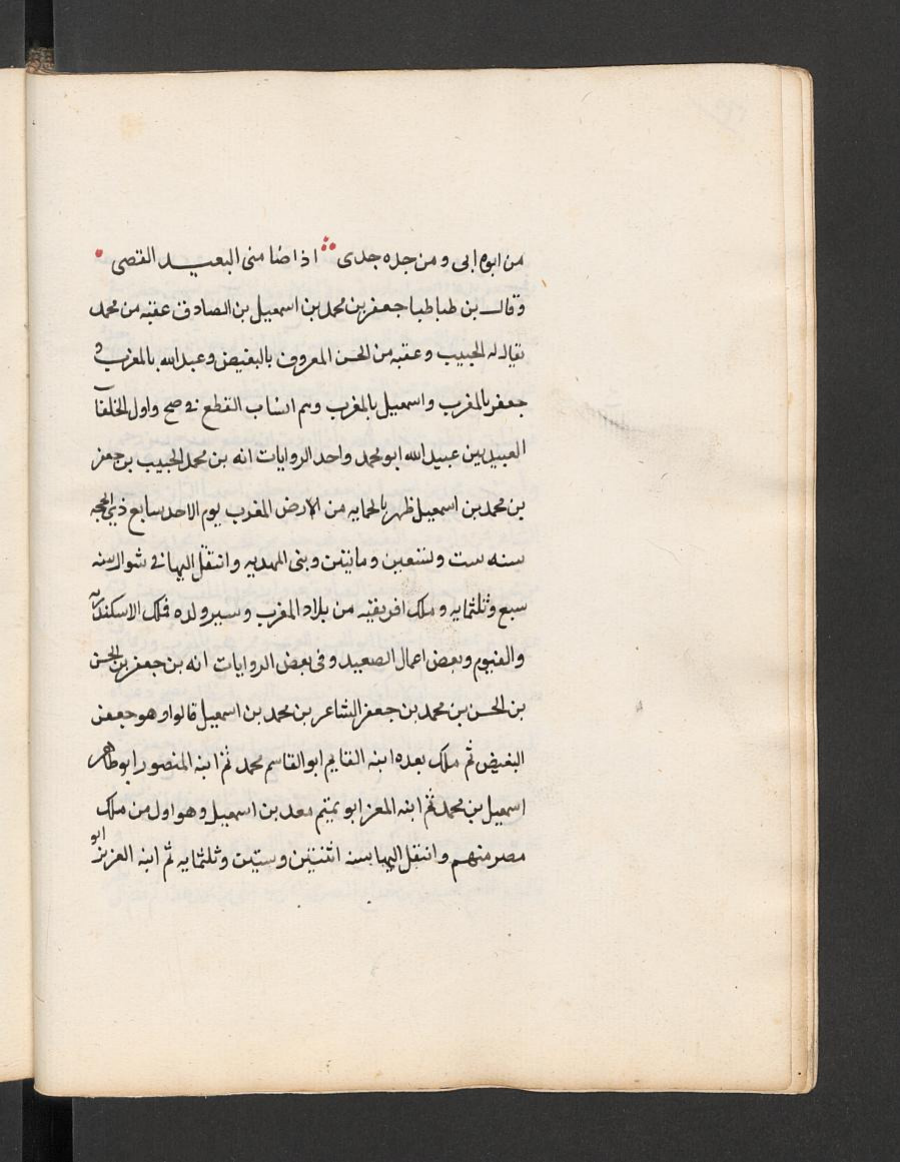 من ابوه ابى و من جده جدى ؞ اذا ضامنى البعيد القصى •
وقال بن طباطبا جعفر بن محمد بن اسمعيل بن الصادق عقبه من محمد
يقال له الحبيب وعقبه من الحسن المعروف بالبغيض وعبد الله بالمغرب و
جعفر بالمغرب واسمعيل بالمغرب وهم انساب القطع فى صح واول الخلفآ
العبيديين عبيد الله ابو محمد واحد الروايات انه بن محمد الحبيب بن جعفر
بن محمد بن اسمعيل ظهر بالحمايه من الارض المغرب يوم الاحد سابع ذي الحجه
سنه ست وتسعين وماتين وبنى المهديه وانتقل اليها فى شوال سنه
سبع وثلثمايه و ملك افريقيه من بلاد المغرب وسير ولده فملك الاسكندريه
والفيوم وبعض اعمال الصعيد وفى بعض الروايات انه بن جعفر بن الحسن
بن الحسن بن محمد بن جعفر الشاعر بن محمد بن اسمعيل قالوا وهو جعفر
البغيض ثم ملك بعده ابنه القايم ابو القاسم محمد ثم ابنه المنصور ابو طاهر
اسمعيل بن محمد ثم ابنه المعز ابو تميم معد بن اسمعيل وهو اول من ملك
مصر منهم وانتقل اليها سنه اثنتين وستين وثلثمايه ثم ابنه العزيز ابو